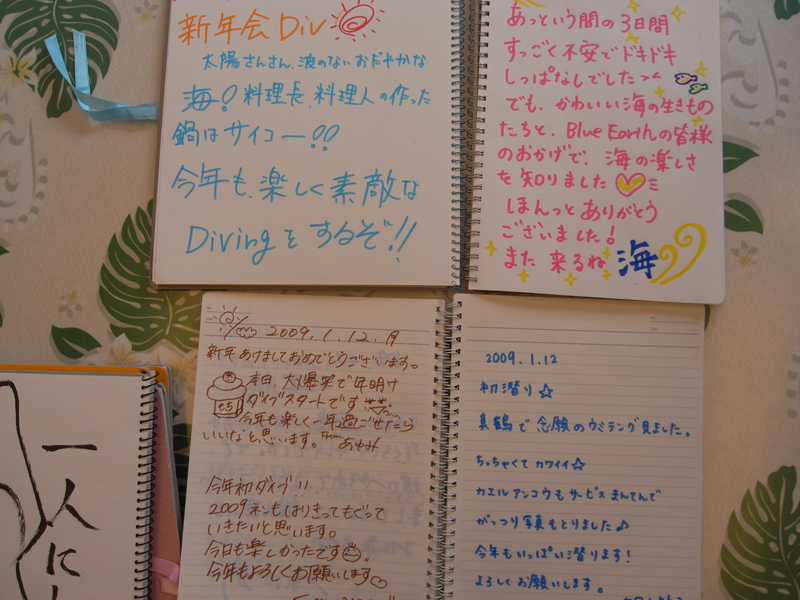 新年会Div
太陽さんさん、波のないおだやかな
海!料理長、料理人の作った
鍋はサイコー!!
今年も、楽しく素敵な
Divingをするぞ!!
あっという間の3日間
すっごく不安でドキドキ
しっぱなしでした><
でも、かわいい海の生きもの
たちと、Blue Earthの皆様
のおかげで、海の楽しさ
を知りました
ほんっとありがとう
ございました!
また来るね 海
2009.1.12.月
新年あけましておめでとうございます。
本日、大爆笑で年明け
ダイブスタートです
もち
今年も楽しく一年過ごせたら
いいなと思います。From あゆみ
今年初ダイブ!!
2009ネンもしおりきってもぐって
いきたいと思います。
今日も楽しかったです
今年もよろしくお願いします♡
2009.1.12
初潜り☆
真鶴で念願のウミテング見ました。
ちっちゃくてカワイイ☆
カエルアンコウもサービスまんてんで
がっつり写真もとりました♪
今年もいっぱい潜ります!
よろしくお願いします。
一人に